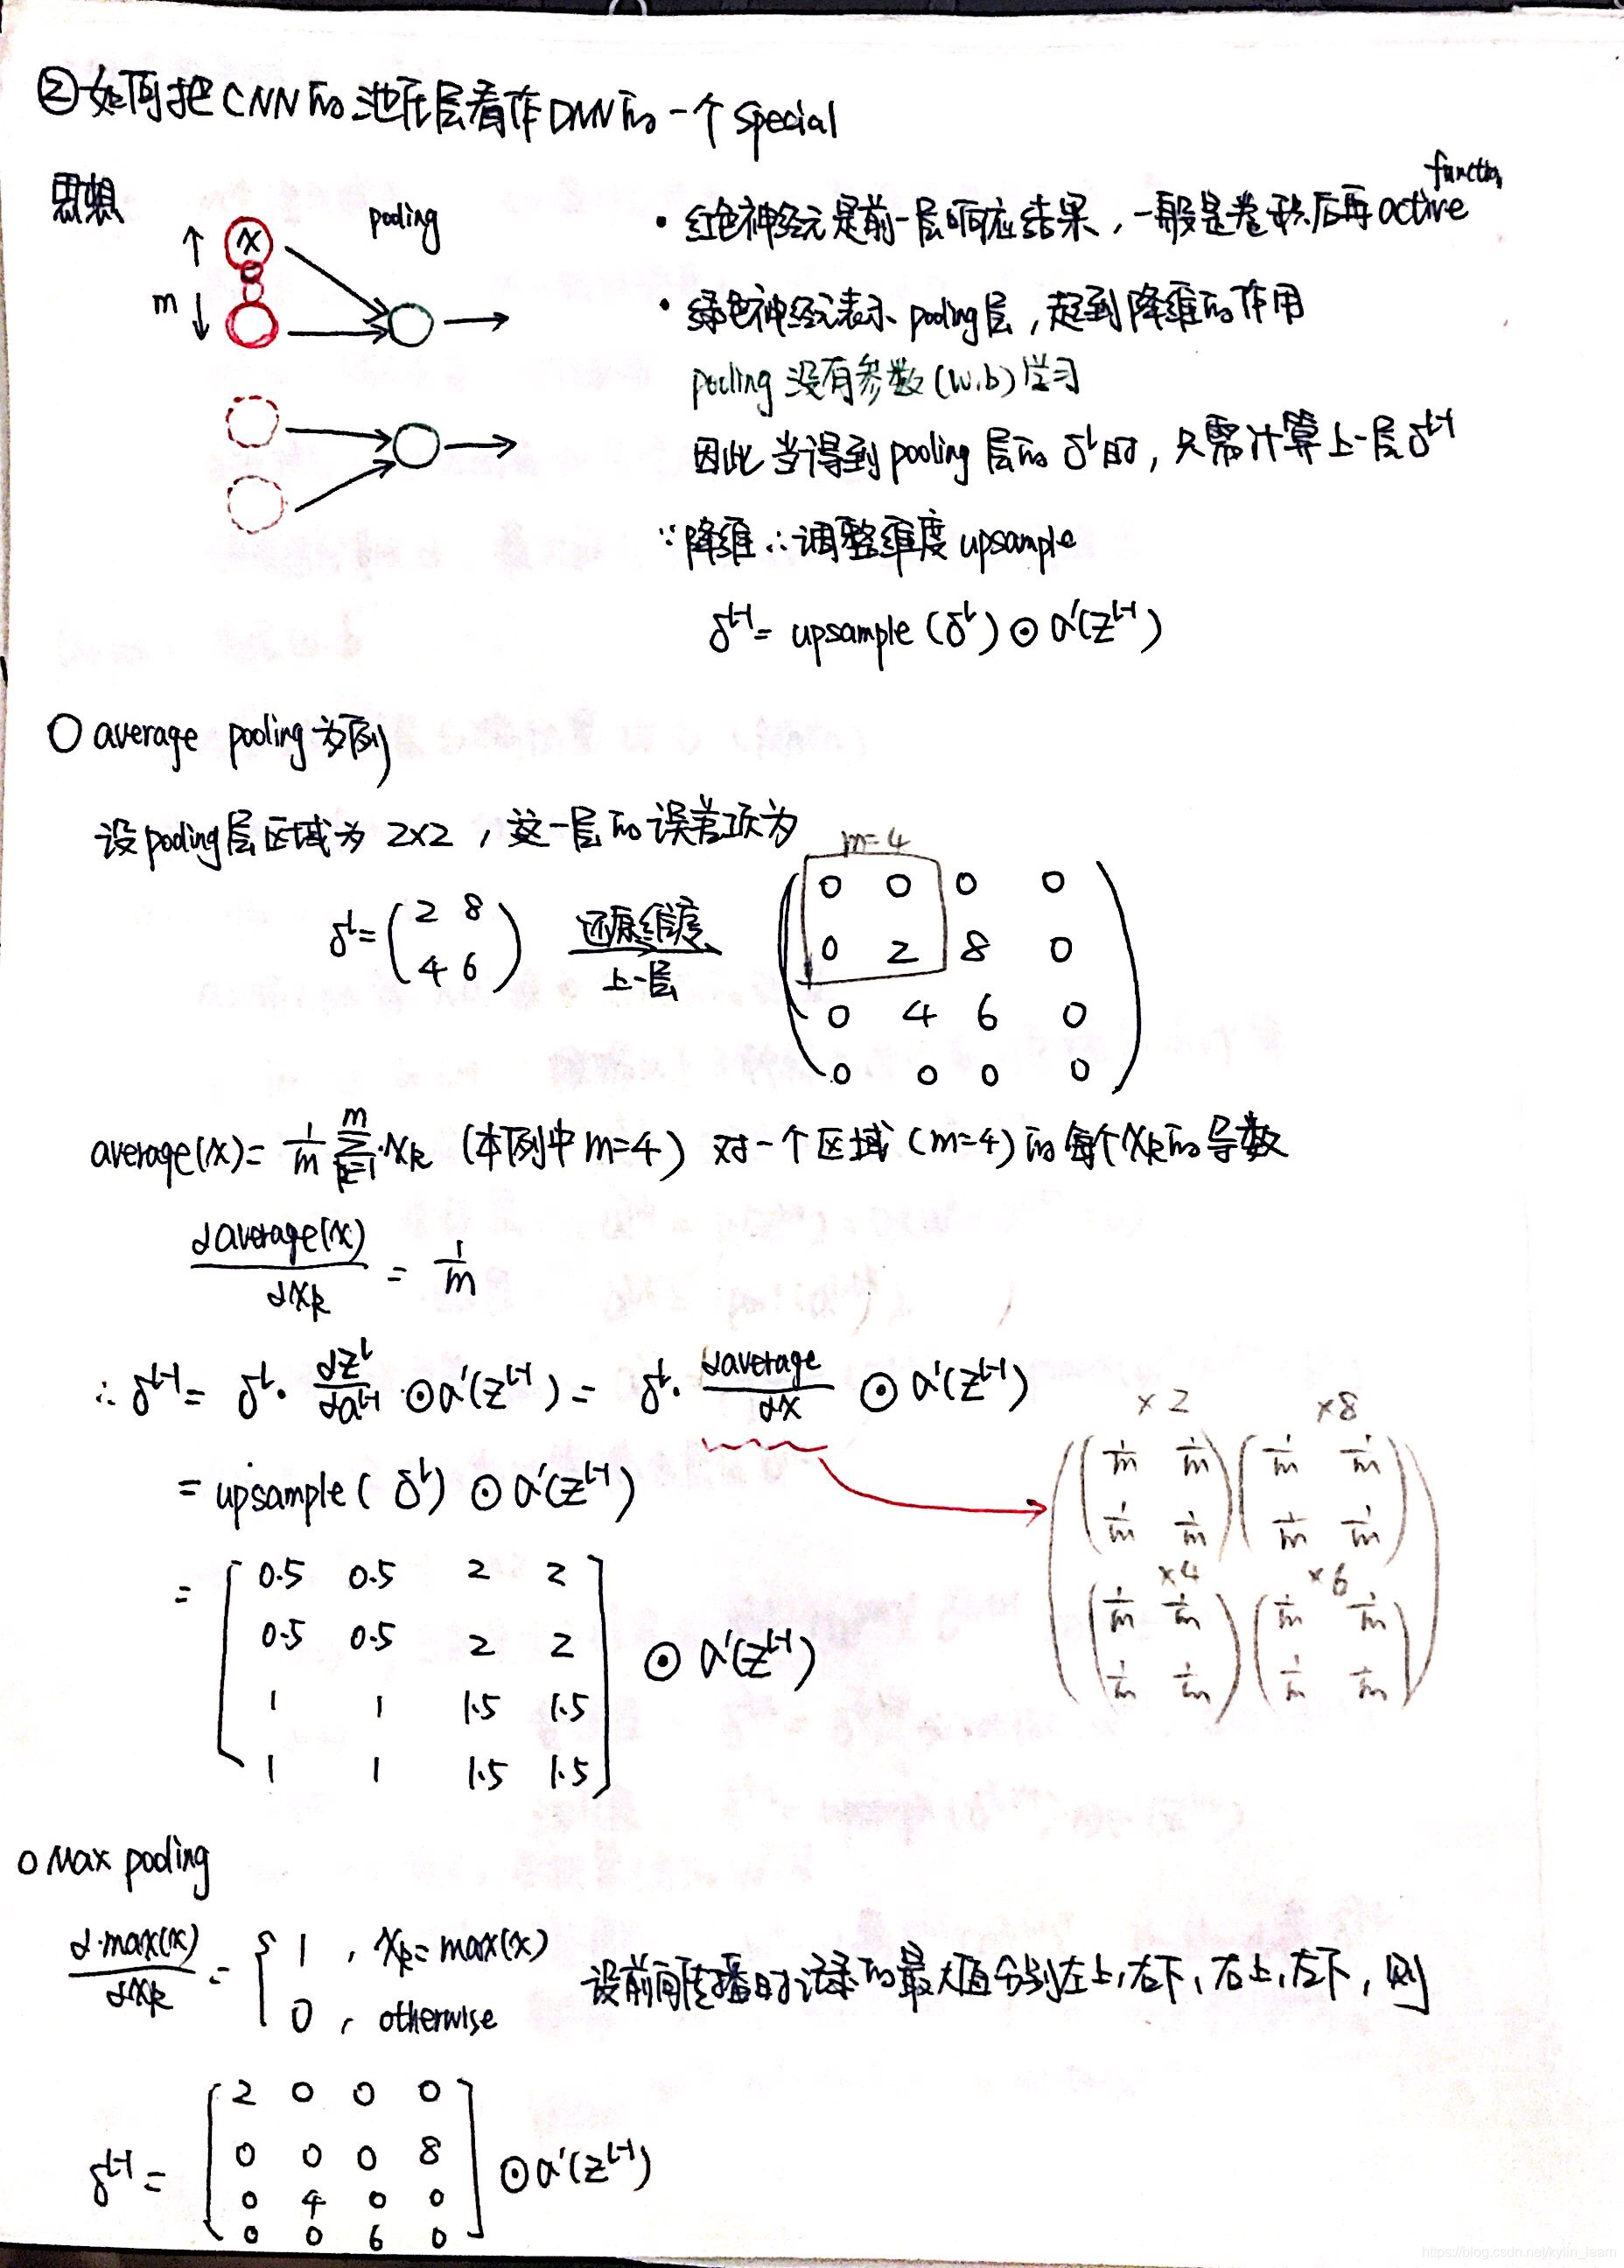 ②如何把CNN的池化层看作DNN的一个special
思想
x
m
pooling
function
• 红色神经元是前一层响应结果，一般是卷积后再active
• 绿色神经元表示pooling层，起到降维的作用
pooling没有参数(w.b)学习
因此当得到pooling层的δᴸ时，只需计算上一层δᴸ⁻¹
∵降维∴调整维度upsample
δᴸ⁻¹= upsample(δᴸ)⊙a'(zᴸ⁻¹)
○ average pooling为例
设pooling层区域为2x2，这一层的误差项为
m=4
δᴸ=
2 8
4 6
还原维度
上一层
0 0 0 0
0 2 8 0
0 4 6 0
0 0 0 0
average(x)= 1/m Σ(k=1→m) xk (本例中m=4) 对一个区域(m=4)的每个xk的导数
∂average(x)/∂xk = 1/m
∴ δᴸ⁻¹= δᴸ· ∂zᴸ/∂aᴸ⁻¹ ⊙a'(zᴸ⁻¹)= δᴸ· ∂average/∂x ⊙ a'(zᴸ⁻¹)
= upsample(δᴸ)⊙a'(zᴸ⁻¹)
x2 x8
1/m 1/m 1/m 1/m
1/m 1/m 1/m 1/m
x4 x6
1/m 1/m 1/m 1/m
1/m 1/m 1/m 1/m
=
0.5 0.5 2 2
0.5 0.5 2 2
1 1 1.5 1.5
1 1 1.5 1.5
⊙ a'(zᴸ⁻¹)
○ Max pooling
∂·max(x)/∂xk = { 1 , xk=max(x)
0 , otherwise
设前向传播时记录的最大值分别左上,右下,右上,左下,则
δᴸ⁻¹=
2 0 0 0
0 0 0 8
0 4 0 0
0 0 6 0
⊙a'(zᴸ⁻¹)
https://blog.csdn.net/kylin_learn